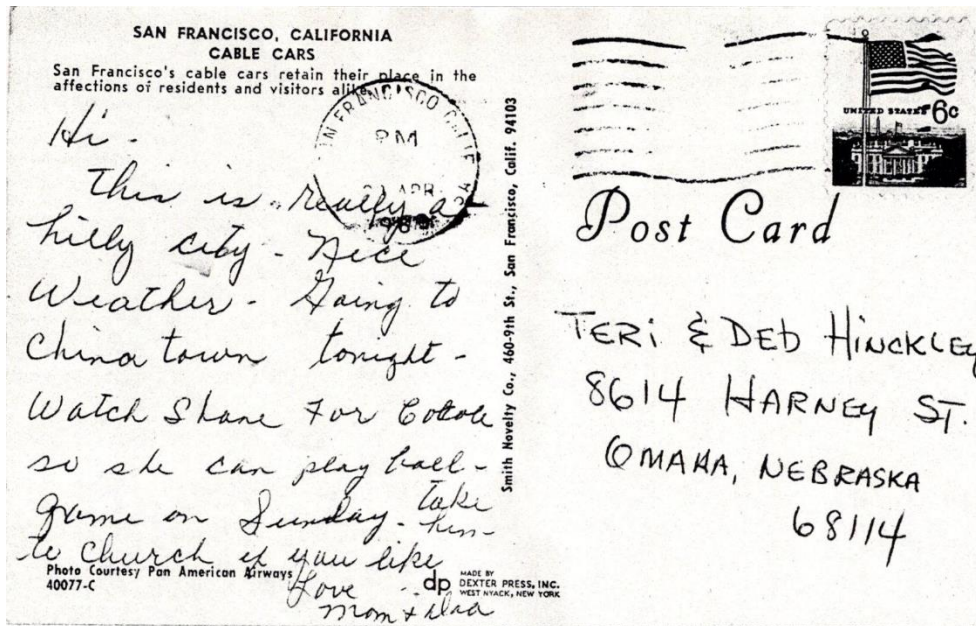 SAN FRANCISCO, CALIFORNIA
CABLE CARS
San Francisco's cable cars retain their place in the
affections of residents and visitors alike.
Hi -
This is really a
hilly city - Nice
Weather - Going to
China town tonight -
Watch Shane For
so she can play ball -
game on Sunday - take him -
to Church if you like
Love -
Mom & Dad
Photo Courtesy Pan American Airways
40077-C
dp
MADE BY
DEXTER PRESS, INC.
WEST NYACK, NEW YORK
Smith Novelty Co., 460-9th St., San Francisco, Calif. 94103
FRANCISCO CALIF
PM
APR
UNITED STATES 6c
Post Card
TERi & DEB HINCKLEY
8614 HARNEY ST.
OMAHA, NEBRASKA
68114